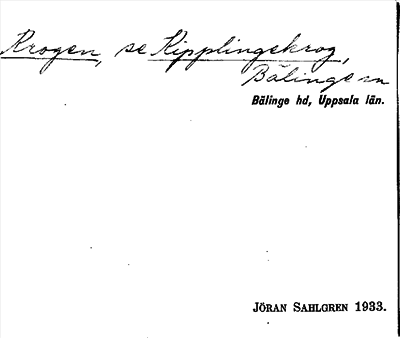 Krogen, se Kipplingekrog,
Bälinge sn
Bälinge hd, Uppsala län.
JÖRAN SAHLGREN 1933.